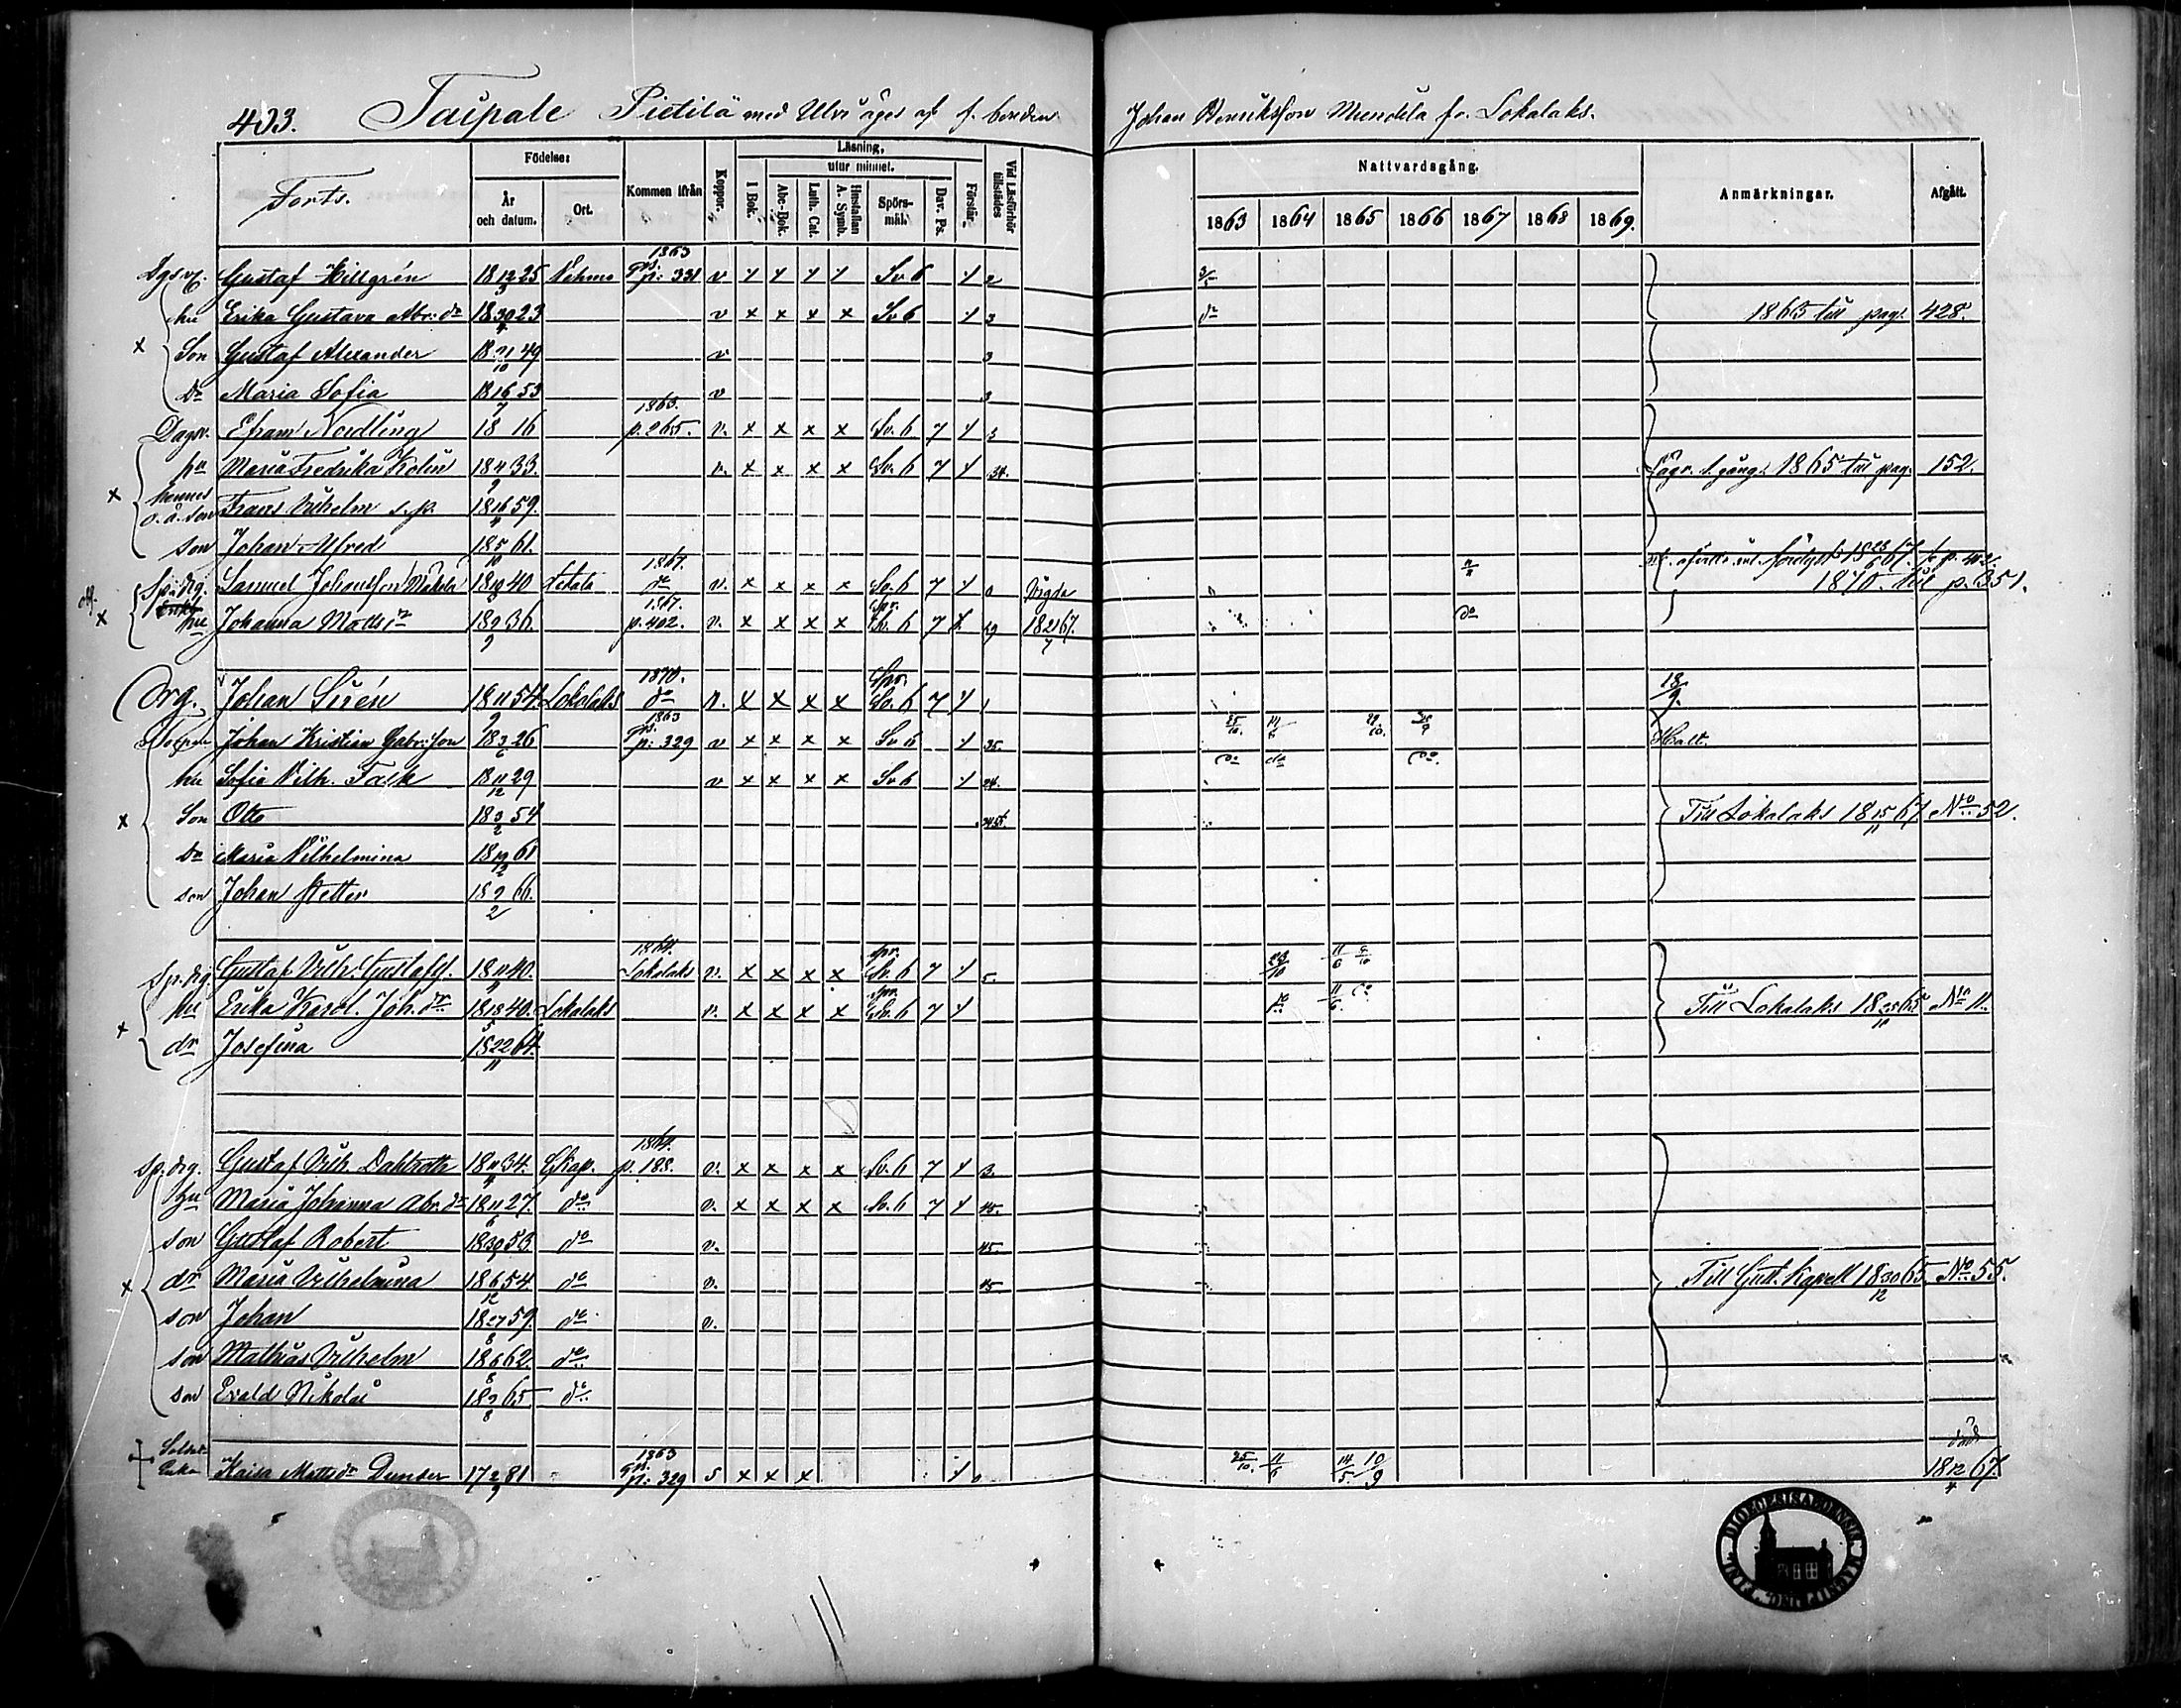 403. Taipale Pietilä med Ulvi äges af f. bonden Johan Henriksson Mundila fr. Lokalaks.
Forts. Födelse: År och datum. Ort. Kommen ifrån Koppor. Läsning, I Bok. utur minnet. Abc-Bok. Luth. Cat. Hustaflan A. Symb. Spörsmål. Dav. Ps. Förstår Vid Läsförhör tillstädes
Nattvardsgång. 1863 1864 1865 1866 1867 1868 1869. Anmärkningar. Afgått.
Gustaf Hillgrén 18 12/3 25 Vehmo 1863 p: 331 v Sv 6 2
hu Erika Gustava Abr: dr 18 30/4 23 v x x x x Sv 6 3 do 1865 till pag. 428.
Son Gustaf Alexander 18 21/10 49 v 3
Dr Maria Sofia 18 16/7 53 v 3
Dagsv. Efraim Nordling 18 16 1863. p. 265. v. x x x x Sv. 6 7 3
hu Maria Fredrika Kolin 18 4/9 33. v. x x x x Sv. 6 7 34. 1865 till pag. 152.
hennes o. ä. son Frans Vilhelm 18 16/4 59.
son Johan Alfred 18 5/10 61.
Sp: drg. Samuel Johansson Mäkelä 18 40 Letala 1867. do v. x x x x Sv. 6 7 0 Vigde 1870. till p. 351.
hu Johanna Matts dr 18 9/9 36. 1867. p. 402. v. x x x x Sv. 6 7 x 19 18 21/7 67. do
Drg. Johan Sirén 18 11/9 54 Lokalaks 1870. do v. x x x x Spr. Sv. 6 7 1 18/9.
Johan Kristian Gabr: son 18 3/6 26 1863 p: 329 v x x x x Sv 6 35. 25/10. Halt.
hu Sofia Vilh. Fask 18 11/12 29 v x x x x Sv 6 24. do do do.
Son Otto 18 3/2 54 Till Lokalaks 18 15/11 67 No. 52.
Dr Maria Vilhelmina 18 19/12 61
son Johan Petter 18 9/2 66.
Sp. drg. Gustaf Vilh. Gustafss. 18 11 40. 1864. Lokalaks v. x x x x spr. Sv. 6 7 5. 23/10 11/6
hu Erika Karol. Joh. dr. 18 18/5 40. Lokalaks v. x x x x spr. Sv. 6 7 do 11/6. do Till Lokalaks 18 25/11 65 No 11.
dr Josefina 18 22/11 64.
Sp. drg. Gustaf Vilh. Dahlroth 18 11/4 34. G. Kap. 1864. p. 188. v. x x x x Sv. 6 7 3.
hu Maria Johanna Abr. dr 18 11/6 27. do v. x x x x Sv. 6 7 45.
son Gustaf Robert 18 30/9 53. do v. 45.
dr Maria Vilhelmina 18 6/12 54. do v. 45 Till Gust. Kapell 18 30/12 65 No. 55.
son Johan 18 27/8 59. do v.
son Mathias Vilhelm 18 6/8 62. do
son Evald Nikolai 18 3/8 65 do
Soldat Enka Kaisa Matts dr Dunder 17 2/9 81 1863 p: 329 s x x x 0 25/10. 11/6 14/5. 10/9 död 18 12/4 67
DIOECESIS ABOENSIS